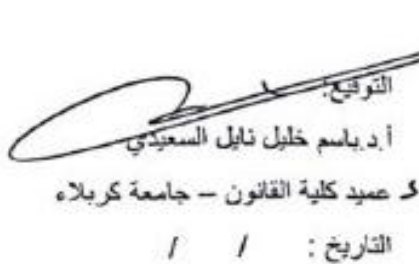 التوقيع:
أ.د.باسم خليل نايل السعيدي
عميد كلية القانون – جامعة كربلاء
التاريخ : / /